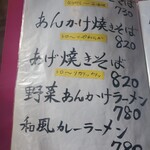 750
あんかけ焼きそば
820
あげ焼きそば
820
野菜あんかけラーメン
780
和風カレーラーメン
780